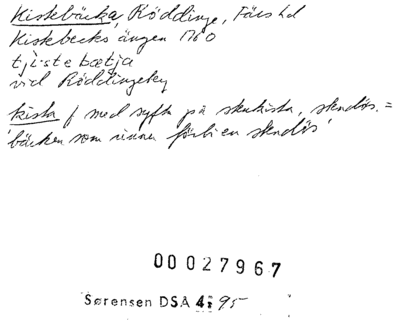 Kistebäcka, Röddinge, Färs hd
Kistebecks ängen 1760
tji·ste bætja
vid Röddingeby
kista f med syftn på skutkista, stendös. =
'bäcken som rinner förbi en stendös'
00027967
Sørensen DSA 4: 95